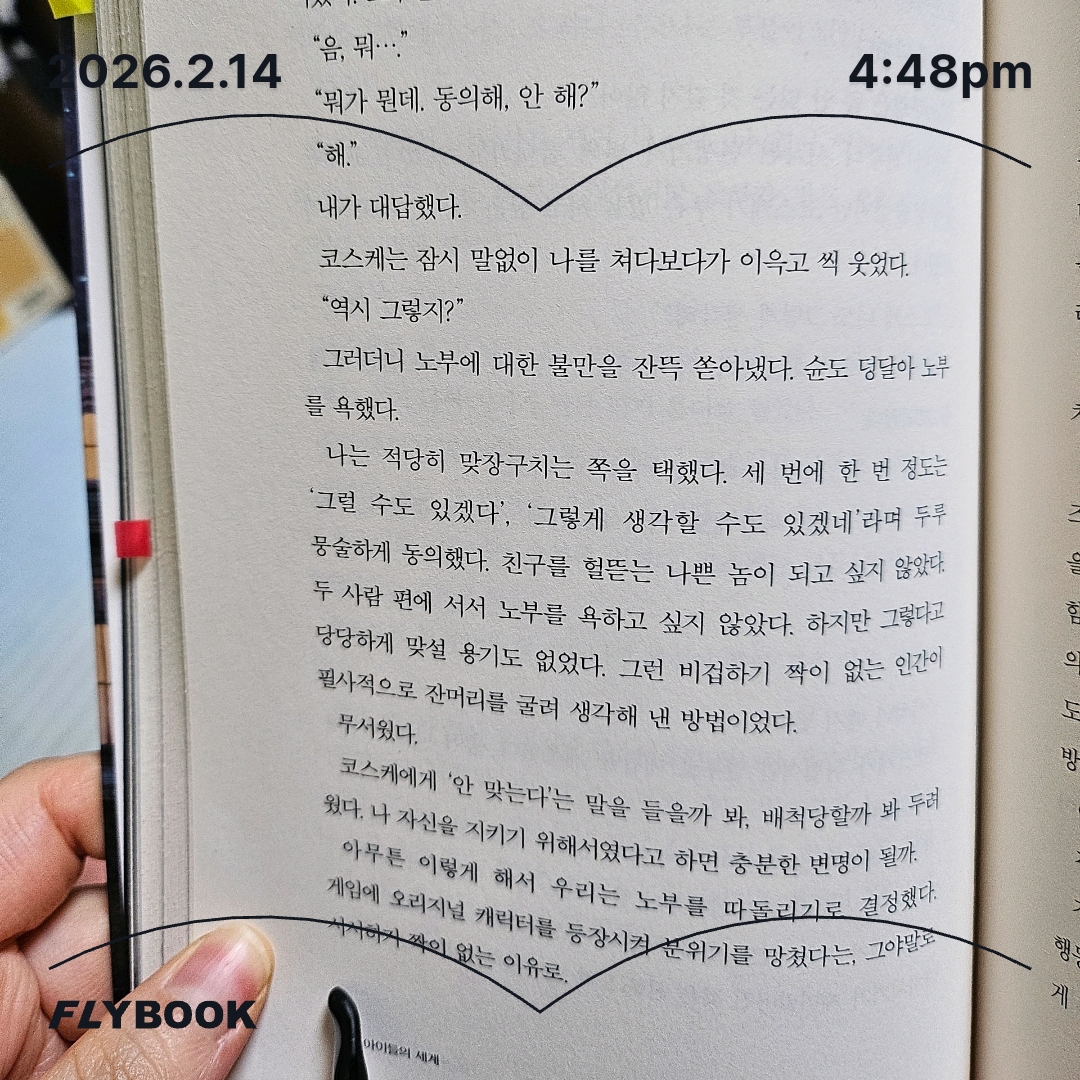 2026.2.14
4:48pm
“음, 뭐….”
“뭐가 뭔데. 동의해, 안 해?”
“해.”
내가 대답했다.
코스케는 잠시 말없이 나를 쳐다보다가 이윽고 씩 웃었다.
“역시 그렇지?”
그러더니 노부에 대한 불만을 잔뜩 쏟아냈다. 슌도 덩달아 노부
를 욕했다.
나는 적당히 맞장구치는 쪽을 택했다. 세 번에 한 번 정도는
‘그럴 수도 있겠다’, ‘그렇게 생각할 수도 있겠네’라며 두루
뭉술하게 동의했다. 친구를 헐뜯는 나쁜 놈이 되고 싶지 않았다.
두 사람 편에 서서 노부를 욕하고 싶지 않았다. 하지만 그렇다고
당당하게 맞설 용기도 없었다. 그런 비겁하기 짝이 없는 인간이
필사적으로 잔머리를 굴려 생각해 낸 방법이었다.
무서웠다.
코스케에게 ‘안 맞는다’는 말을 들을까 봐, 배척당할까 봐 두려
웠다. 나 자신을 지키기 위해서였다고 하면 충분한 변명이 될까.
아무튼 이렇게 해서 우리는 노부를 따돌리기로 결정했다.
게임에 오리지널 캐릭터를 등장시켜 분위기를 망쳤다는, 그야말로
시시하기 짝이 없는 이유로.
FLYBOOK
아이들의 세계